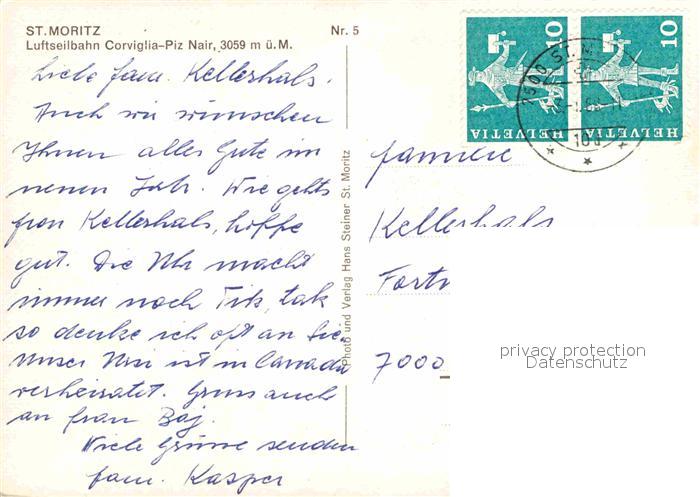 ST. MORITZ
Nr. 5
Luftseilbahn Corviglia–Piz Nair, 3059 m ü. M.
Liebe fam. Kellerhals.
Auch wir wünschen
Ihnen alles Gute im
neuen Jahr. Wie gehts
frau Kellerhals, hoffe
gut. Die Uhr macht
immer noch Tik, tak
so denke ich oft an Sie
Unser Ursi ist in Canada
verheiratet. Gruss auch
an frau Baj.
Viele Grüsse senden
fam. Kasper
Photo und Verlag Hans Steiner St. Moritz
10
HELVETIA
10
HELVETIA
7500 ST. M
familie
Kellerhals
7000
privacy protection
Datenschutz